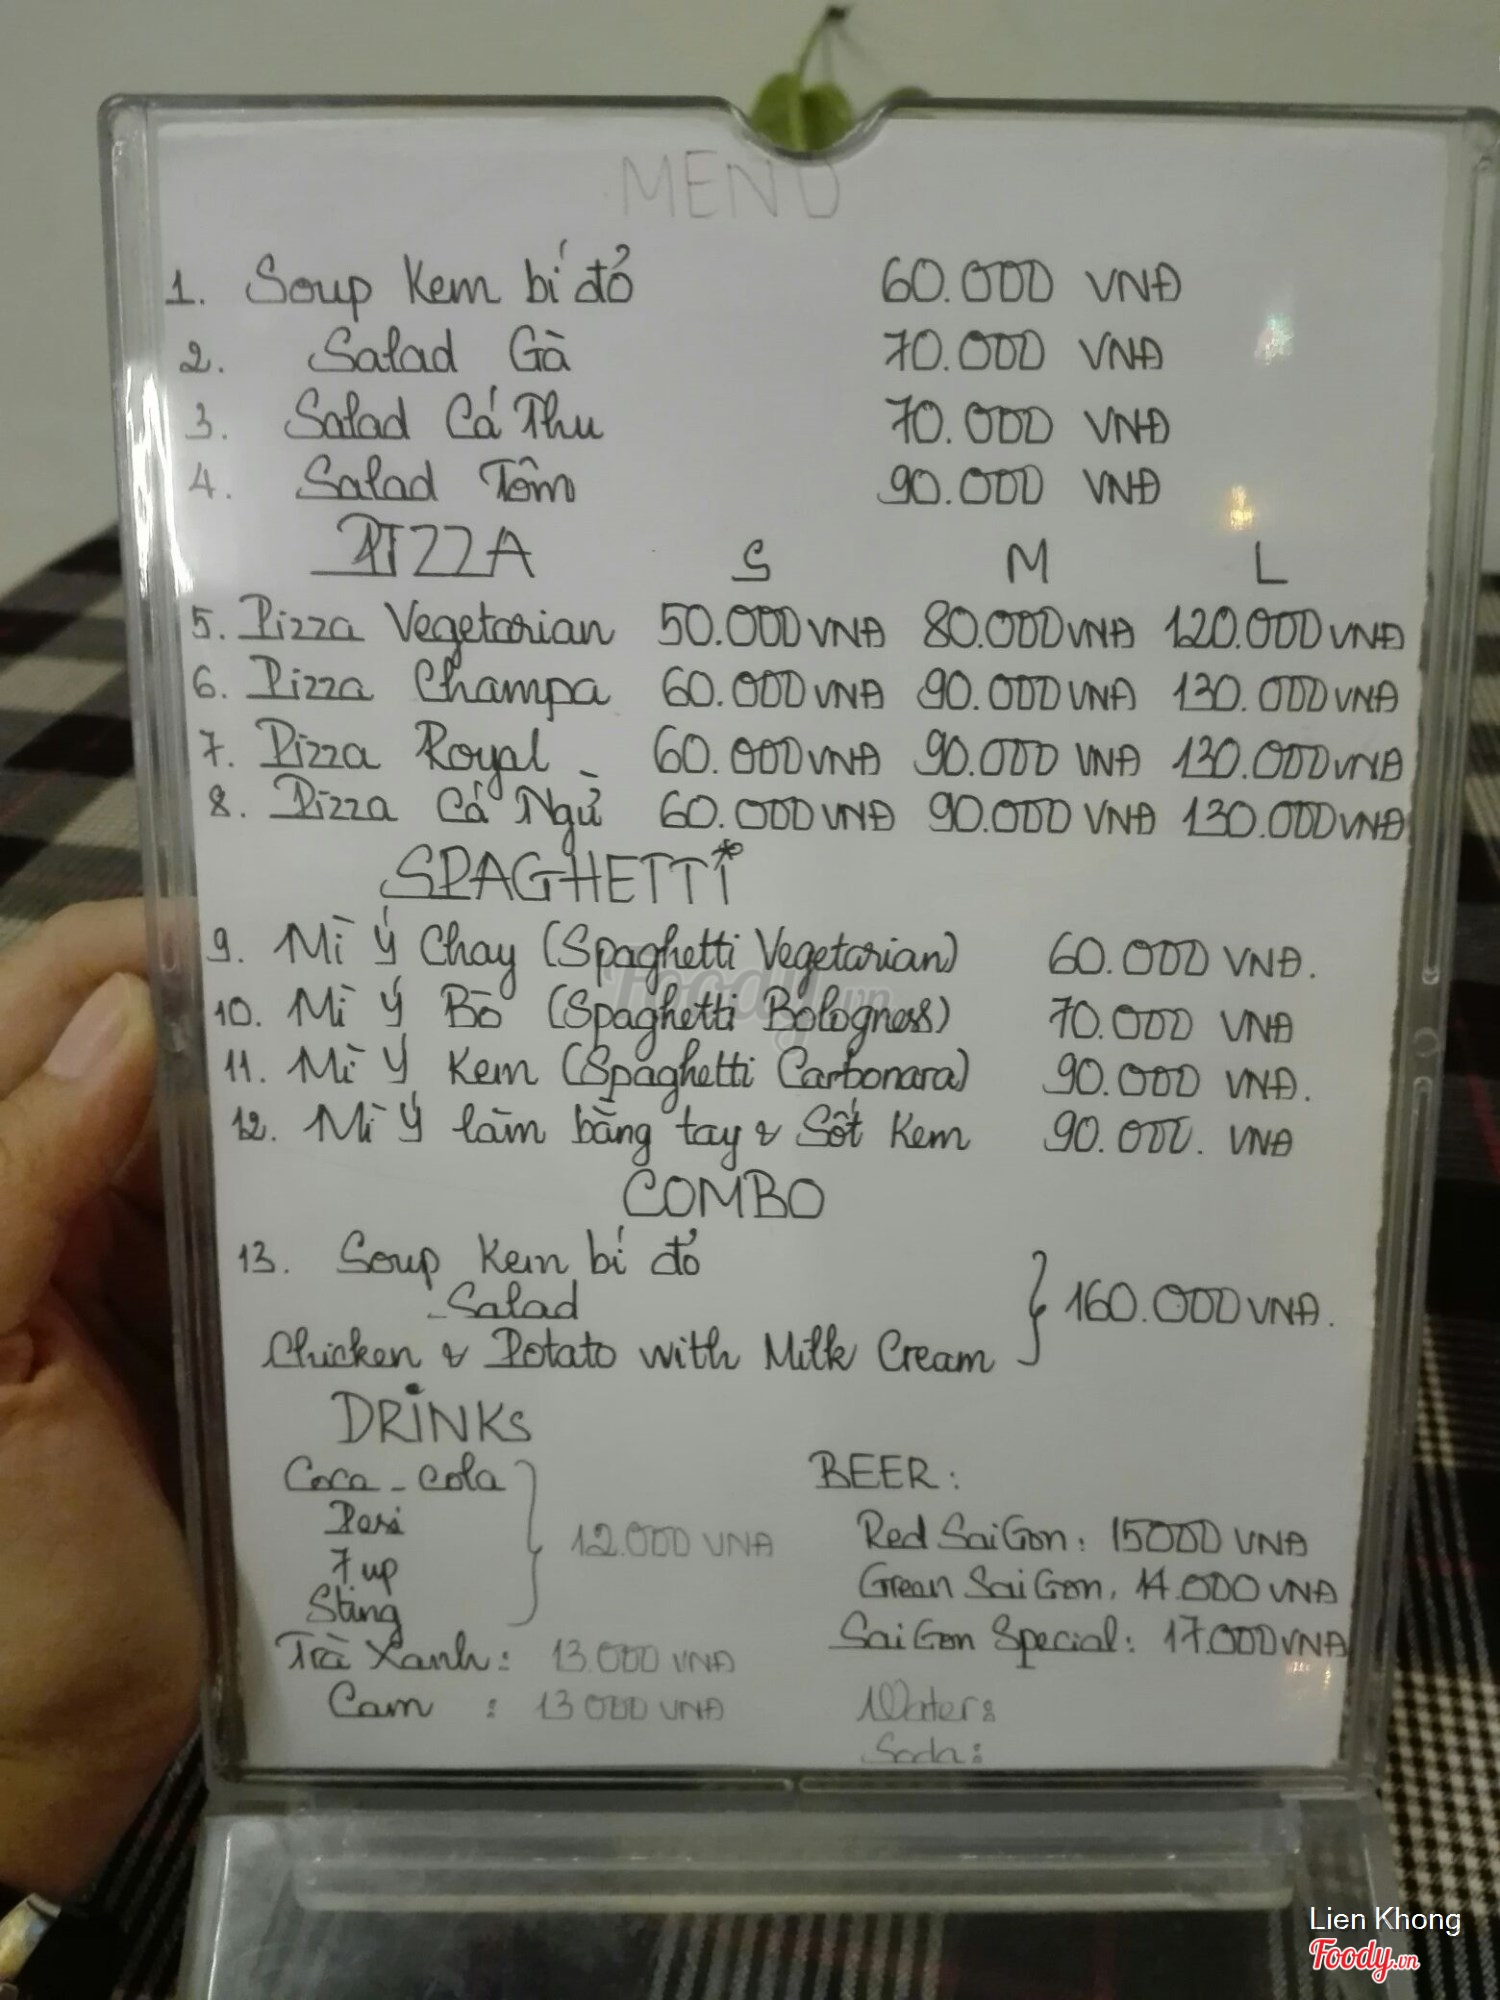 MENU
1. Soup Kem bí đỏ 60.000 VNĐ
2. Salad Gà 70.000 VNĐ
3. Salad Cá Thu 70.000 VNĐ
4. Salad Tôm 90.000 VNĐ
PIZZA S M L
5. Pizza Vegetarian 50.000 VNĐ 80.000 VNĐ 120.000 VNĐ
6. Pizza Champa 60.000 VNĐ 90.000 VNĐ 130.000 VNĐ
7. Pizza Royal 60.000 VNĐ 90.000 VNĐ 130.000 VNĐ
8. Pizza Cá Ngừ 60.000 VNĐ 90.000 VNĐ 130.000 VNĐ
SPAGHETTI
9. Mì Ý Chay (Spaghetti Vegetarian) 60.000 VNĐ.
10. Mì Ý Bò (Spaghetti Bologness) 70.000 VNĐ
11. Mì Ý Kem (Spaghetti Carbonara) 90.000 VNĐ.
12. Mì Ý làm bằng tay & Sốt Kem 90.000. VNĐ
COMBO
13. Soup Kem bí đỏ
- Salad
Chicken & Potato with Milk Cream } 160.000 VNĐ.
DRINKS
Coca - cola
Pesi
7 up
Sting } 12.000 VNĐ
Trà Xanh: 13.000 VNĐ
Cam : 13 000 VNĐ
BEER:
Red SaiGon: 15000 VNĐ
Grean SaiGon. 14.000 VNĐ
SaiGon Special: 17.000 VNĐ
Water:
Soda:
Foody.vn
Lien Khong
Foody.vn